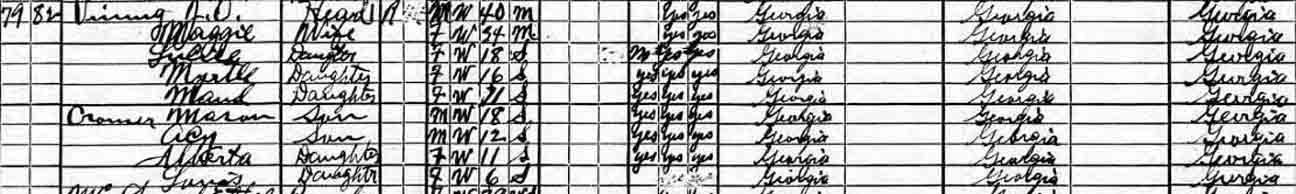 79 82 Vining J.D. Head R M W 40 M yes yes Georgia Georgia Georgia
Maggie Wife F W 34 M yes yes Georgia Georgia Georgia
Daughter F W 18 S no yes yes Georgia Georgia Georgia
Myrtle Daughter F W 16 S yes yes yes Georgia Georgia Georgia
Maud Daughter F W S yes yes yes Georgia Georgia Georgia
Cromer Mason Son M W 18 S yes yes yes Georgia Georgia Georgia
Acy Son M W 12 S yes yes yes Georgia Georgia Georgia
Alberta Daughter F W 11 S yes yes yes Georgia Georgia Georgia
Daughter F W 6 S Georgia Georgia Georgia